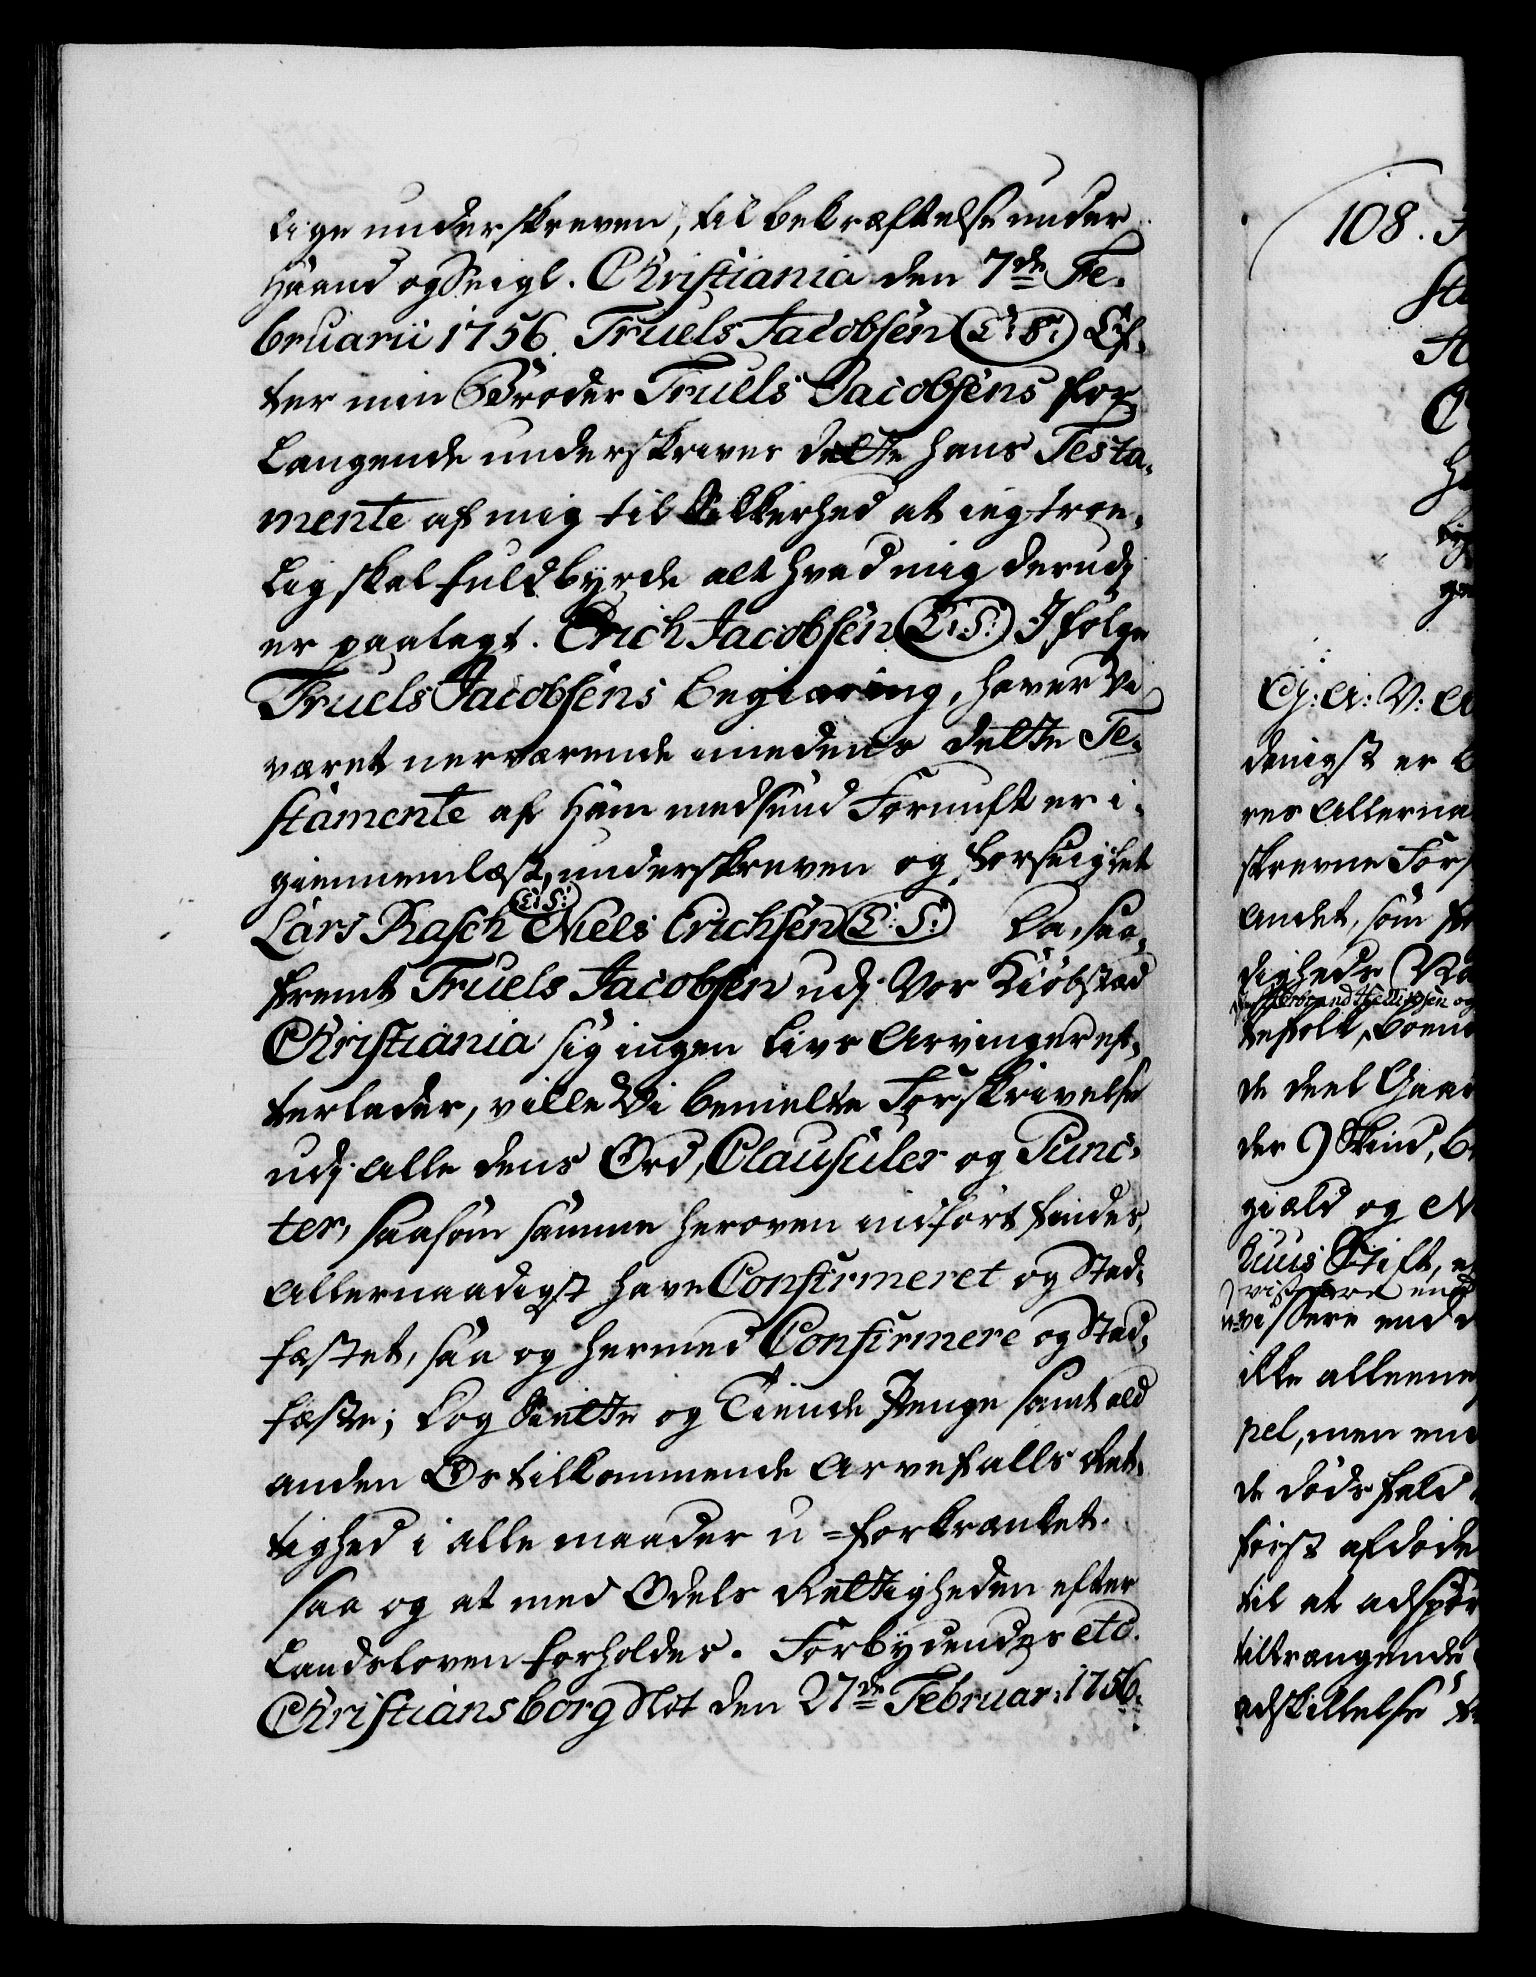 lige underskreven, til bekræftelse under
Haand og Seigl. Christiania den 7de Fe-
bruarii 1756. Truels Jacobsen (L: S:) Ef-
ter min Broder Truels Jacobsens for-
langende underskrives dette hans Testa-
mente af mig til Sikkerhed at ieg troe-
lig skal fuldbyrde alt hvad mig derudj
er paalagt. Erich Jacobsen (L: S:) Ifølge
Truels Jacobsens begiæring, haver Vi
været nerværende imedens dette Te-
stamente af Ham med sund Fornuft er i-
giennemlæst, underskreven og forseiglet
Lars Rasch (L: S:) Niels Erichsen (L: S:) Da, saa-
fremt Truels Jacobsen udj Vor Kiøbstad
Christiania sig ingen Livs Arvinger ef-
terlader, ville Vi bemelte Forskrivelse
udj alle dens Ord, Clausuler og Punc-
ter, saasom samme heroven indført findes,
Allernaadigst have Confirmeret og Stad-
fæstet, saa og hermed Confirmere og Stad-
fæste; Dog Siette og Tiende Penge samt ald
anden Os tilkommende Arvefalls Ret-
tighed i alle maader u-forkrænket.
Saa og at med Odels Rettigheden efter
Landsloven forholdes. Forbydendes etc.
Christiansborg Slot den 27de Februar: 1756.
108.
G: A: V: A
denigst er b
res Allerna
skrevne Fors
andet, som
digheds
de deel Gaar
der 9 Skind, B
giæld og N
huus Stift, e
vissere end d
ikke alleene
pel, men end
de dødsfald
først afdøde
til at adspør
tiltrængende
adskillelse